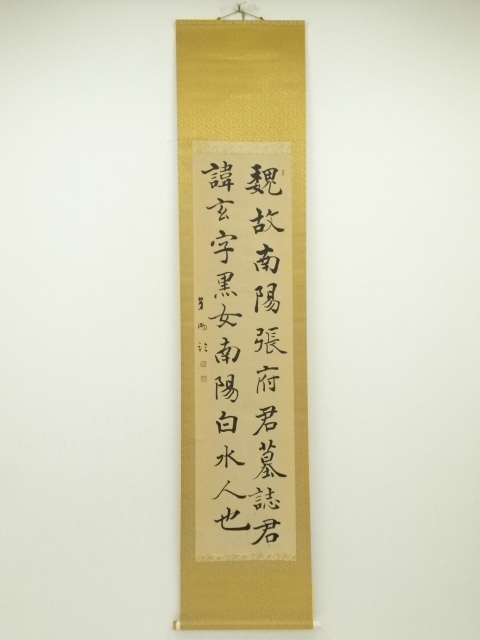 魏故南陽張府君墓誌君
諱玄字黒女南陽白水人也